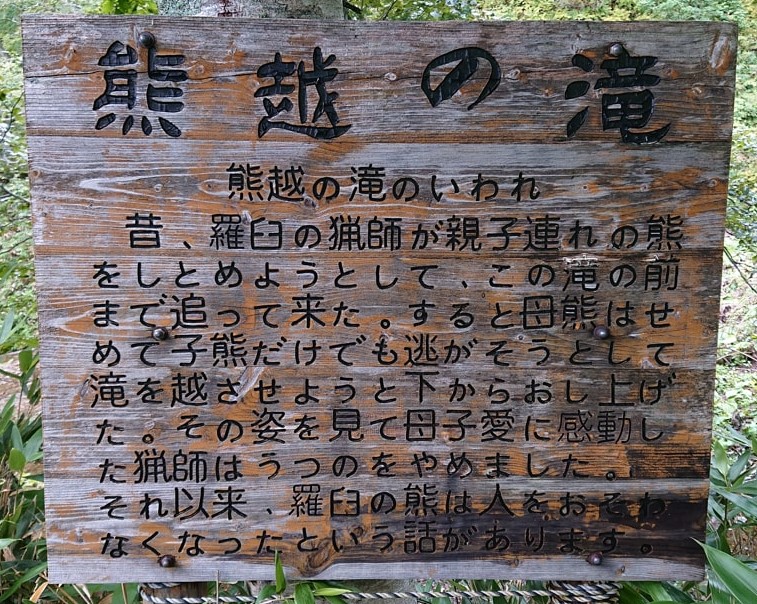 熊越の滝
熊越の滝のいわれ
昔、羅臼の猟師が親子連れの熊
をしとめようとして、この滝の前
まで追って来た。すると母熊はせ
めて子熊だけでも逃がそうとして
滝を越させようと下からおし上げ
た。その姿を見て母子愛に感動し
た猟師はうつのをやめました。
それ以来、羅臼の熊は人をおそわ
なくなったという話があります。